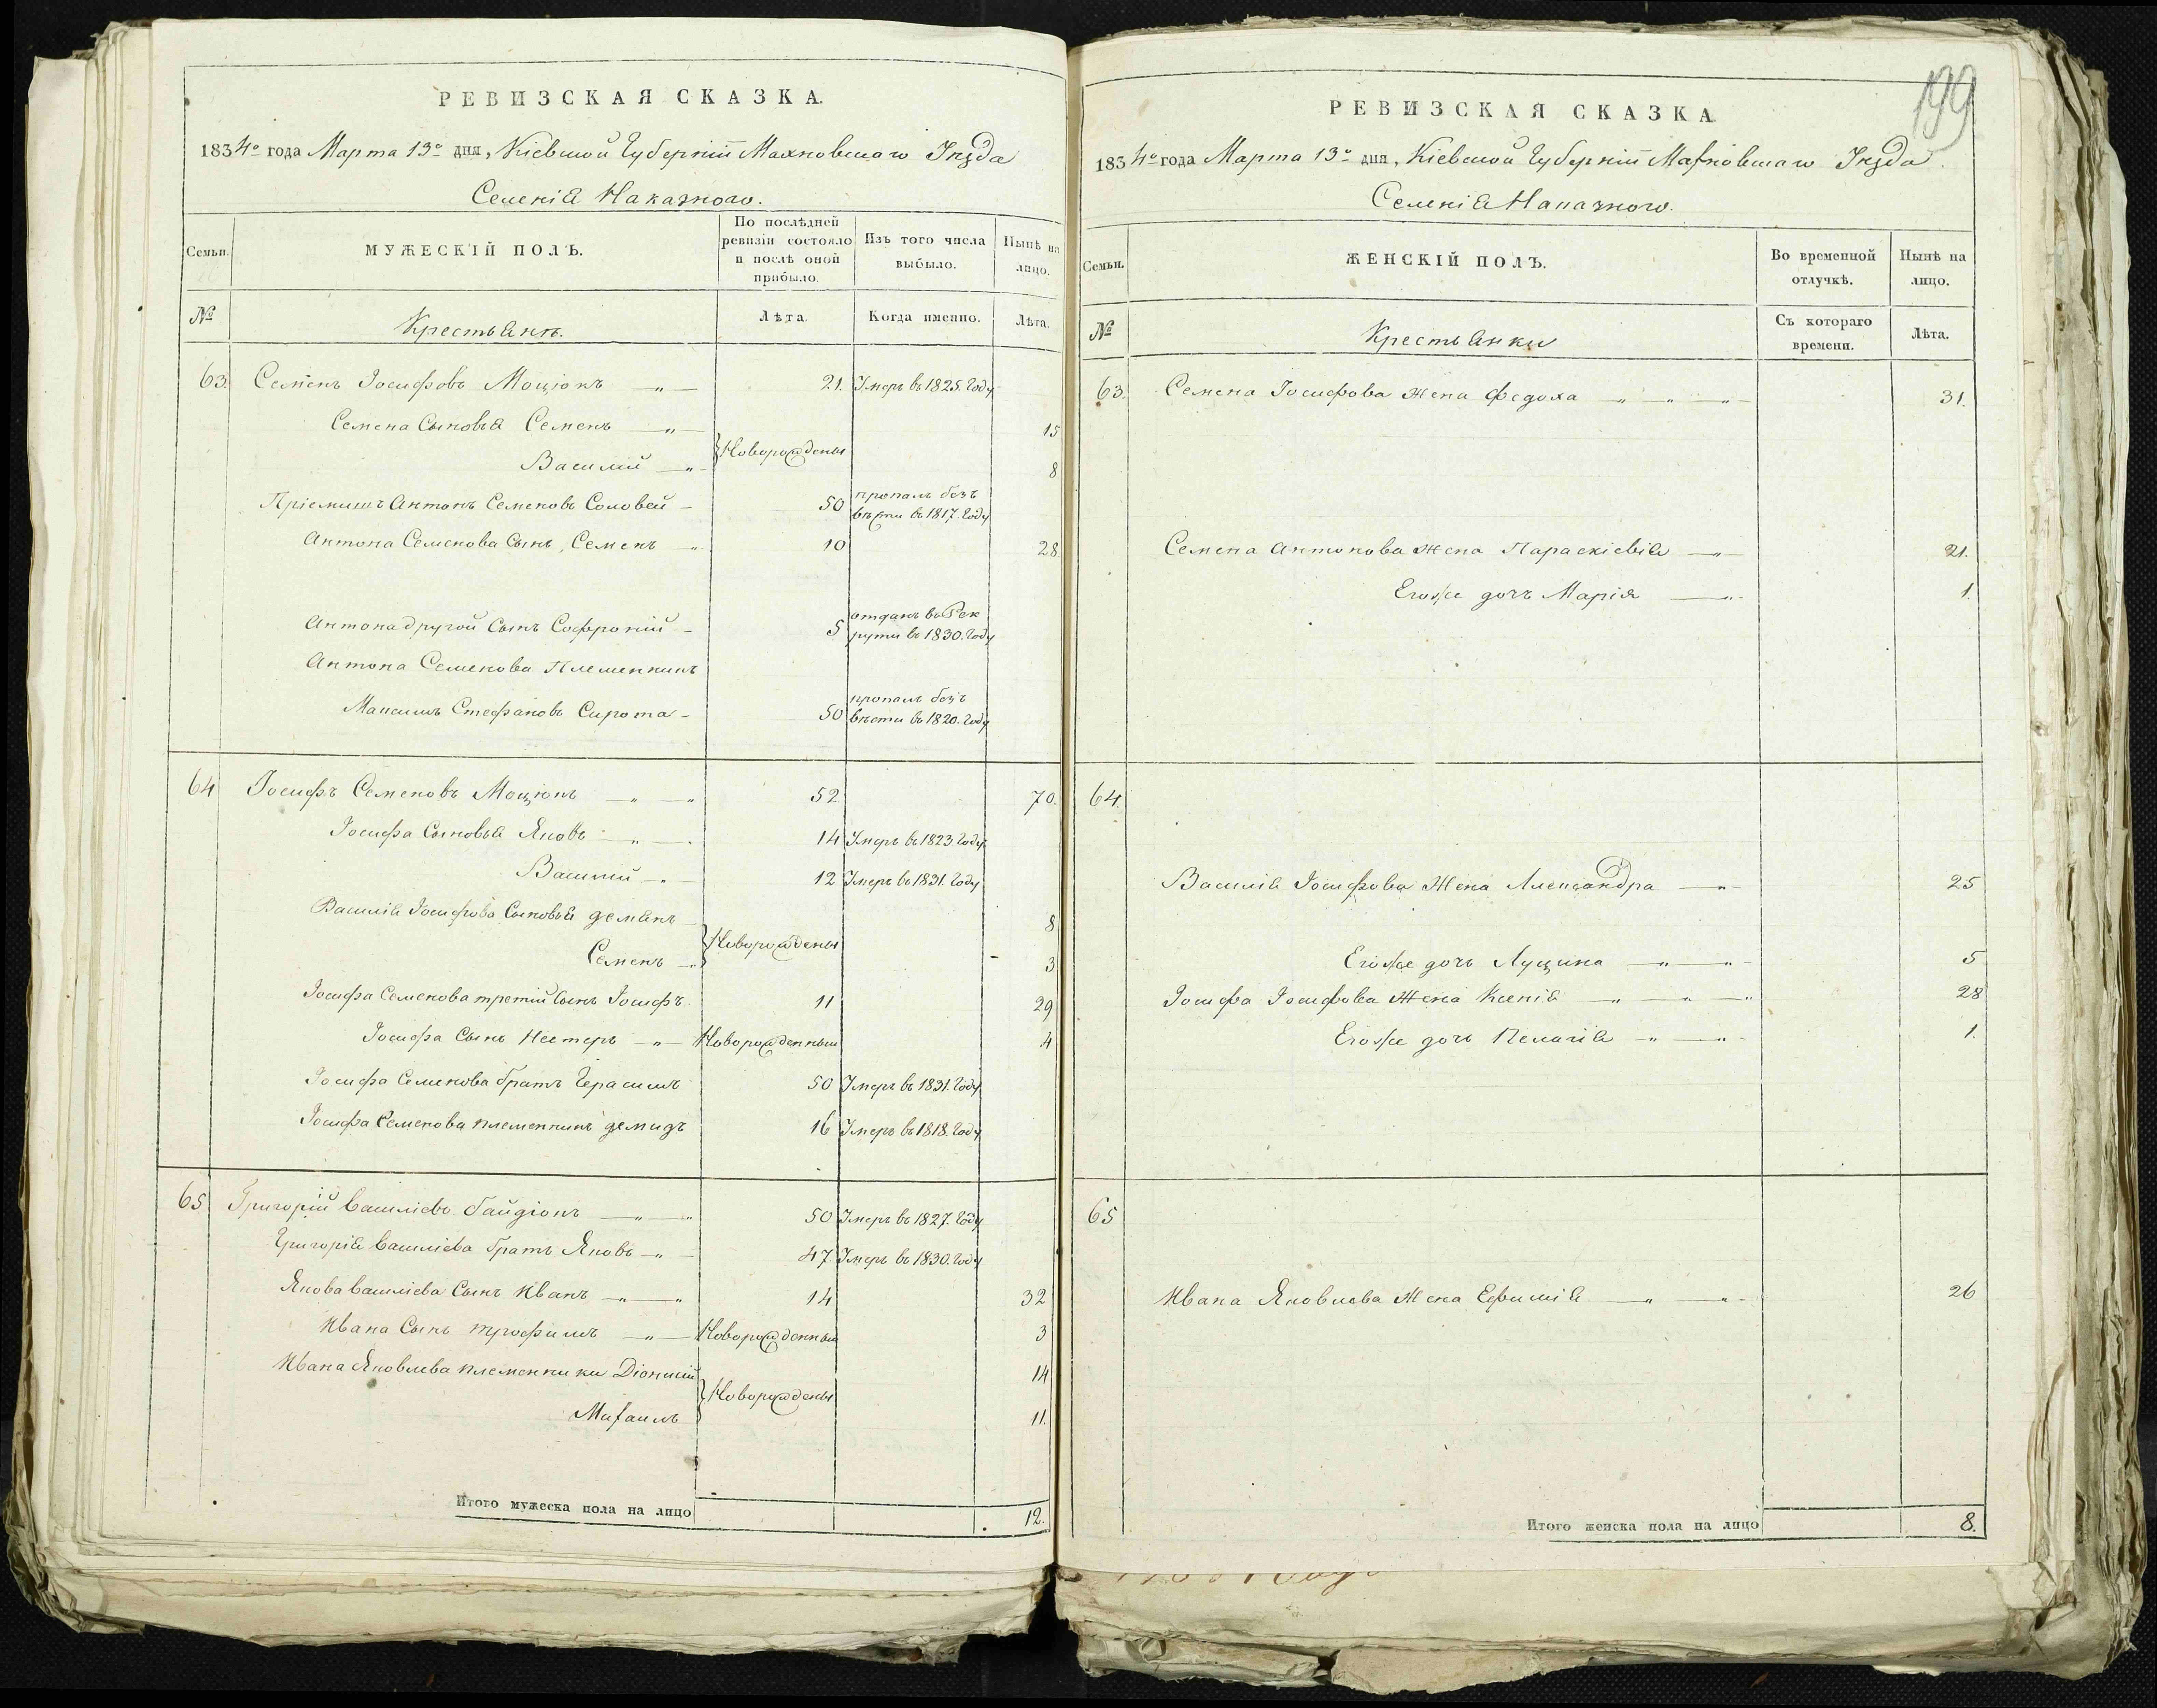 РЕВИЗСКАЯ СКАЗКА.
1834го года Марта 13го дня, Кіевской Губерніи Махновскаго Уѣзда
Селенія Наказного.
Семьи.
МУЖЕСКІЙ ПОЛЪ.
По послѣдней ревизіи состояло и послѣ оной прибыло.
Изъ того числа выбыло.
Нынѣ на лицо.
№
Крестьянъ.
Лѣта.
Когда именно.
Лѣта.
63. Семенъ Іосифовъ Моцюкъ 21. Умеръ въ 1825. Году
Семена Сыновья Семенъ 15
Новорождены
Василій 8
Пріемышъ Антонъ Семеновъ Соловей 50 пропалъ безъ вѣсти въ 1817. Году
Антона Семенова Сынъ, Семенъ 10 28
Антона другой Сынъ Софроній 5 отданъ въ Рекруты въ 1830. Году
Антона Семенова Племенникъ
Максимъ Стефановъ Сирота 50 пропалъ безъ вѣсти въ 1820. Году
64 Іосифъ Семеновъ Моцюкъ 52 70.
Іосифа Сыновья Яковъ 14 Умеръ въ 1823. Году
Василій 12 Умеръ въ 1831. Году
Василія Іосифова Сыновья Демянъ 8
Новорождены
Семенъ 3
Іосифа Семенова третій Сынъ Іосифъ. 11 29
Іосифа Сынъ Нестеръ Новорожденный 4
Іосифа Семенова братъ Герасимъ 50 Умеръ въ 1831. Году
Іосифа Семенова племенникъ Демидъ 16 Умеръ въ 1818. Году
65 Григорій Василіевъ Байдюкъ 50 Умеръ въ 1827. Году
Григорія Василіева братъ Яковъ 47. Умеръ въ 1830. Году
Якова Василіева Сынъ Иванъ 14 32
Ивана Сынъ Трофимъ Новорожденный 3
Ивана Яковлева племенники Діонисій 14
Новорождены
Михаилъ 11.
Итого мужеска пола на лицо 12.
199
РЕВИЗСКАЯ СКАЗКА
1834го года Марта 13го дня, Кіевской Губерніи Махновскаго Уѣзда.
Селенія Наказного.
Семьи.
ЖЕНСКІЙ ПОЛЪ.
Во временной отлучкѣ.
Нынѣ на лицо.
№
Крестьянки
Съ котораго времени.
Лѣта.
63. Семена Іосифова жена Федоха 31.
Семена Антонова жена Параскіевія 21.
Егоже дочь Марія 1.
64.
Василія Іосифова Жена Александра 25
Егоже дочь Луцина 5
Іосифа Іосифова Жена Ксенія 28
Егоже дочь Пелагія 1.
65
Ивана Яковлева Жена Ефимія 26
Итого женска пола на лицо 8.